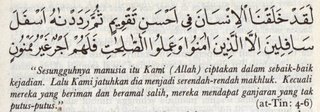 لَقَدْ خَلَقْنَا الْإِنْسَانَ فِي أَحْسَنِ تَقْوِيمٍ ثُمَّ رَدَدْنٰهُ أَسْفَلَ
سَافِلِينَ إِلَّا الَّذِينَ اٰمَنُوا وَعَمِلُوا الصّٰلِحٰتِ فَلَهُمْ أَجْرٌ غَيْرُ مَمْنُونٍ
"Sesungguhnya manusia itu Kami (Allah) ciptakan dalam sebaik-baik
kejadian. Lalu Kami jatuhkan dia menjadi serendah-rendah makhluk. Kecuali
mereka yang beriman dan beramal salih, mereka mendapat ganjaran yang tak
putus-putus."
(at-Tin: 4-6)